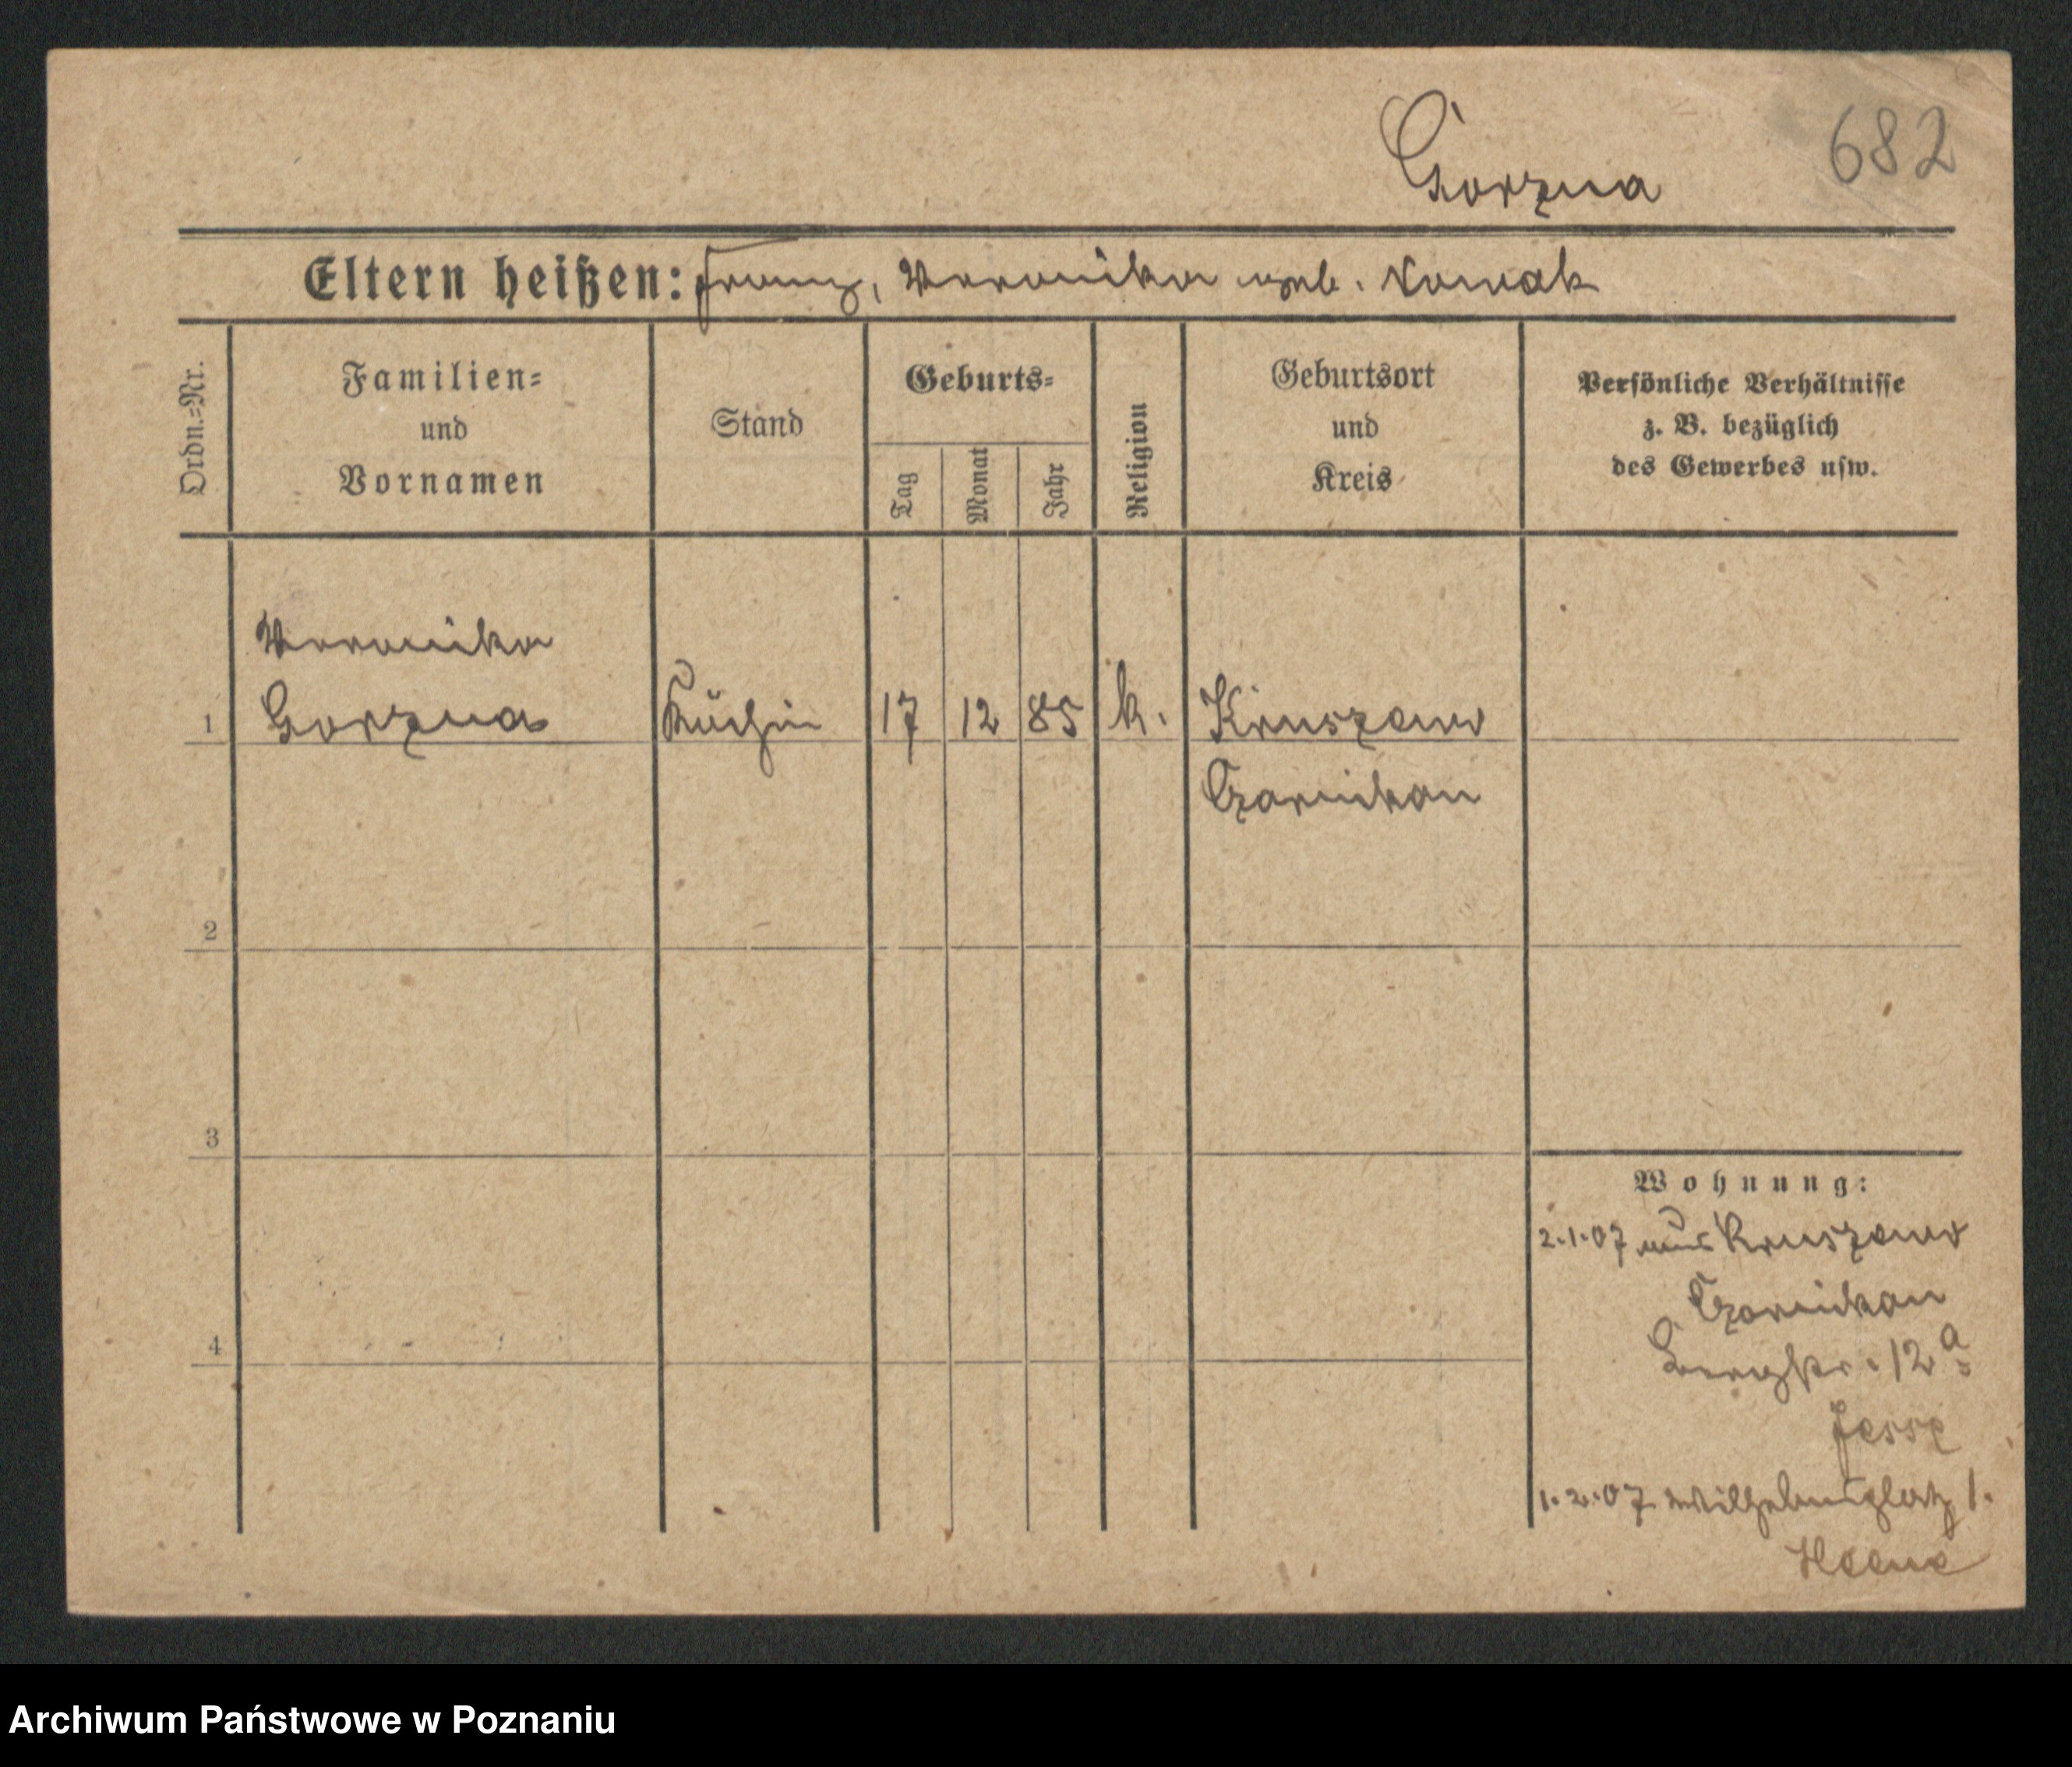 Gorzna
682
Eltern heißen: Franz, Veronika geb. Nowak
Ordn.=Nr.
Familien=
und
Vornamen
Stand
Geburts=
Tag
Monat
Jahr
Religion
Geburtsort
und
Kreis
Persönliche Verhältnisse
z. B. bezüglich
des Gewerbes usw.
Veronika
1 Gorzna Köchin 17 12 85 k. Kruszewo
Czarnikau
2
3
4
Wohnung:
2.1.07 aus Kruszewo
Czarnikau
Bergstr. 12a
Jesse
1.2.07 Wilhelmsplatz 1.
Archiwum Państwowe w Poznaniu